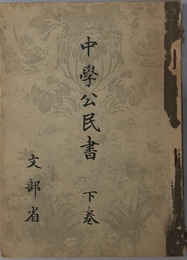 中學公民書 下卷
文部省